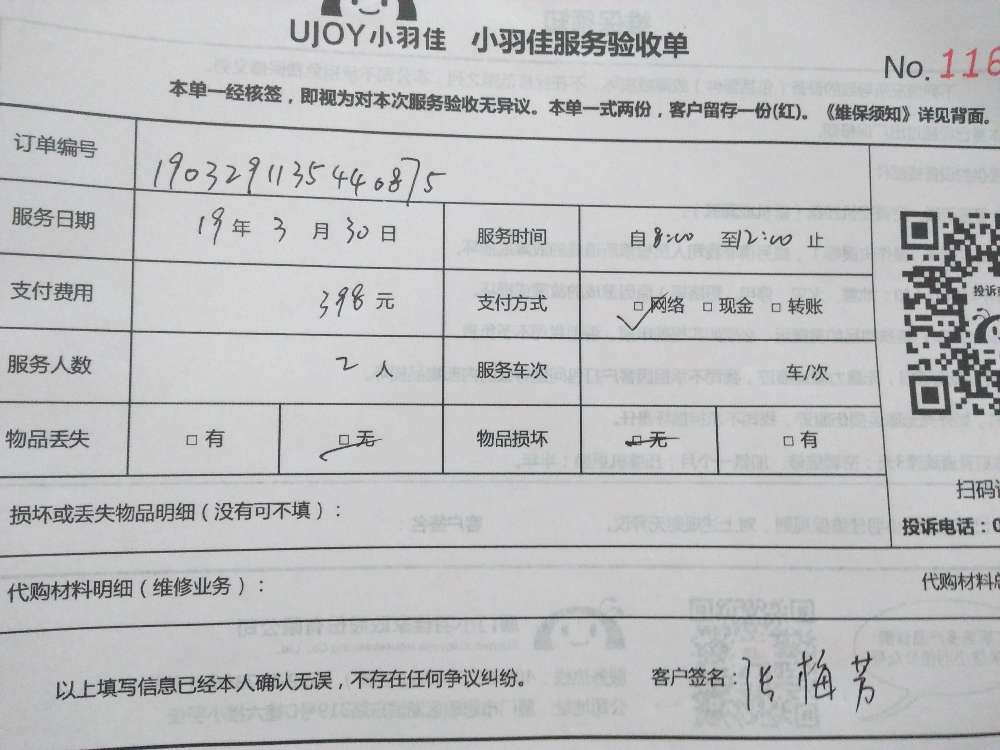 UJOY小羽佳 小羽佳服务验收单
No. 116
本单一经核签，即视为对本次服务验收无异议。本单一式两份，客户留存一份(红)。《维保须知》详见背面。
订单编号 19032911354440875
服务日期 19 年 3 月 30 日 服务时间 自 8:00 至 12:00 止
支付费用 398 元 支付方式 □ 网络 □ 现金 □ 转账
服务人数 2 人 服务车次 车/次
物品丢失 □ 有 □ 无 物品损坏 □ 无 □ 有
投诉
扫码
损坏或丢失物品明细（没有可不填）：
投诉电话：0
代购材料明细（维修业务）：
代购材料总
以上填写信息已经本人确认无误，不存在任何争议纠纷。 客户签名：张梅芳